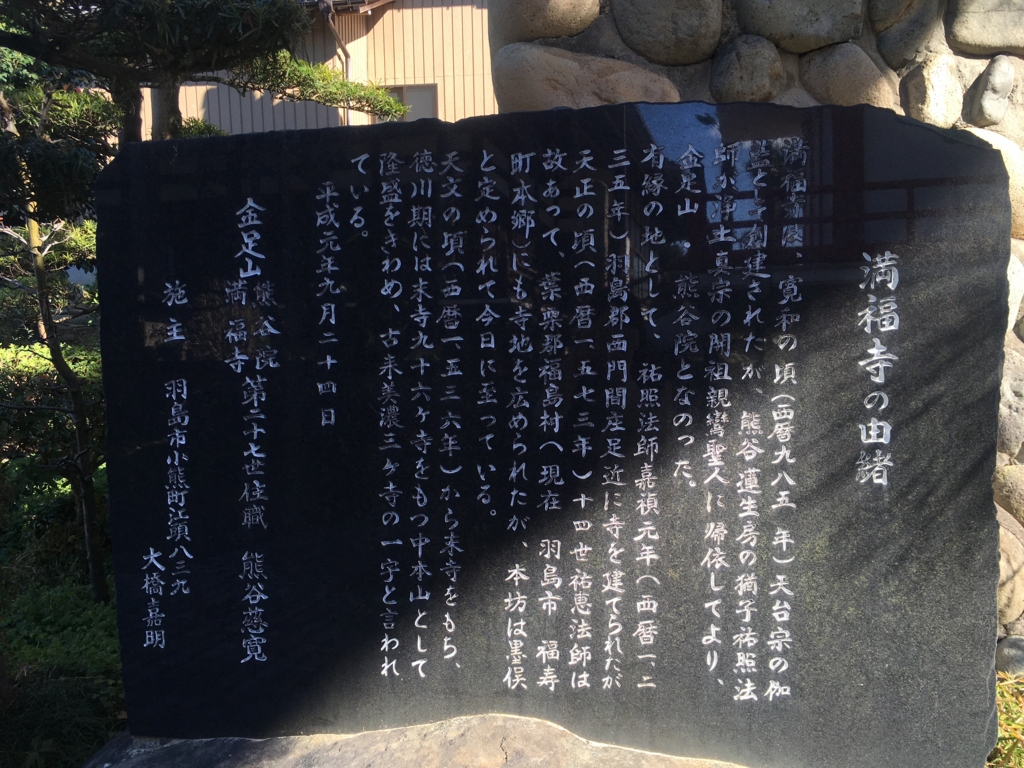 満福寺の由緒
満福寺は、寛和の頃(西暦九八五年)天台宗の伽
藍として創建されたが、熊谷蓮生房の猶子祐照法
師が浄土真宗の開祖親鸞聖人に帰依してより、
金足山・熊谷院となのった。
有縁の地として、祐照法師嘉禎元年(西暦一、二
三五年)羽島郡西門間庄足近に寺を建てられたが
天正の頃(西暦一、五七三年)十四世祐恵法師は
故あって、葉栗郡福島村(現在 羽島市 福寿
町本郷)にも寺地を広められたが、本坊は墨俣
と定められて今日に至っている。
天文の頃(西暦一五三六年)から末寺をもち、
徳川期には末寺九十六ヶ寺をもつ中本山として
隆盛をきわめ、古来美濃三ヶ寺の一字と言われ
ている。
平成元年九月二十四日
金足山熊谷院満福寺第二十七世住職 熊谷慈寛
施主 羽島市小熊町江頭八三九
大橋嘉明